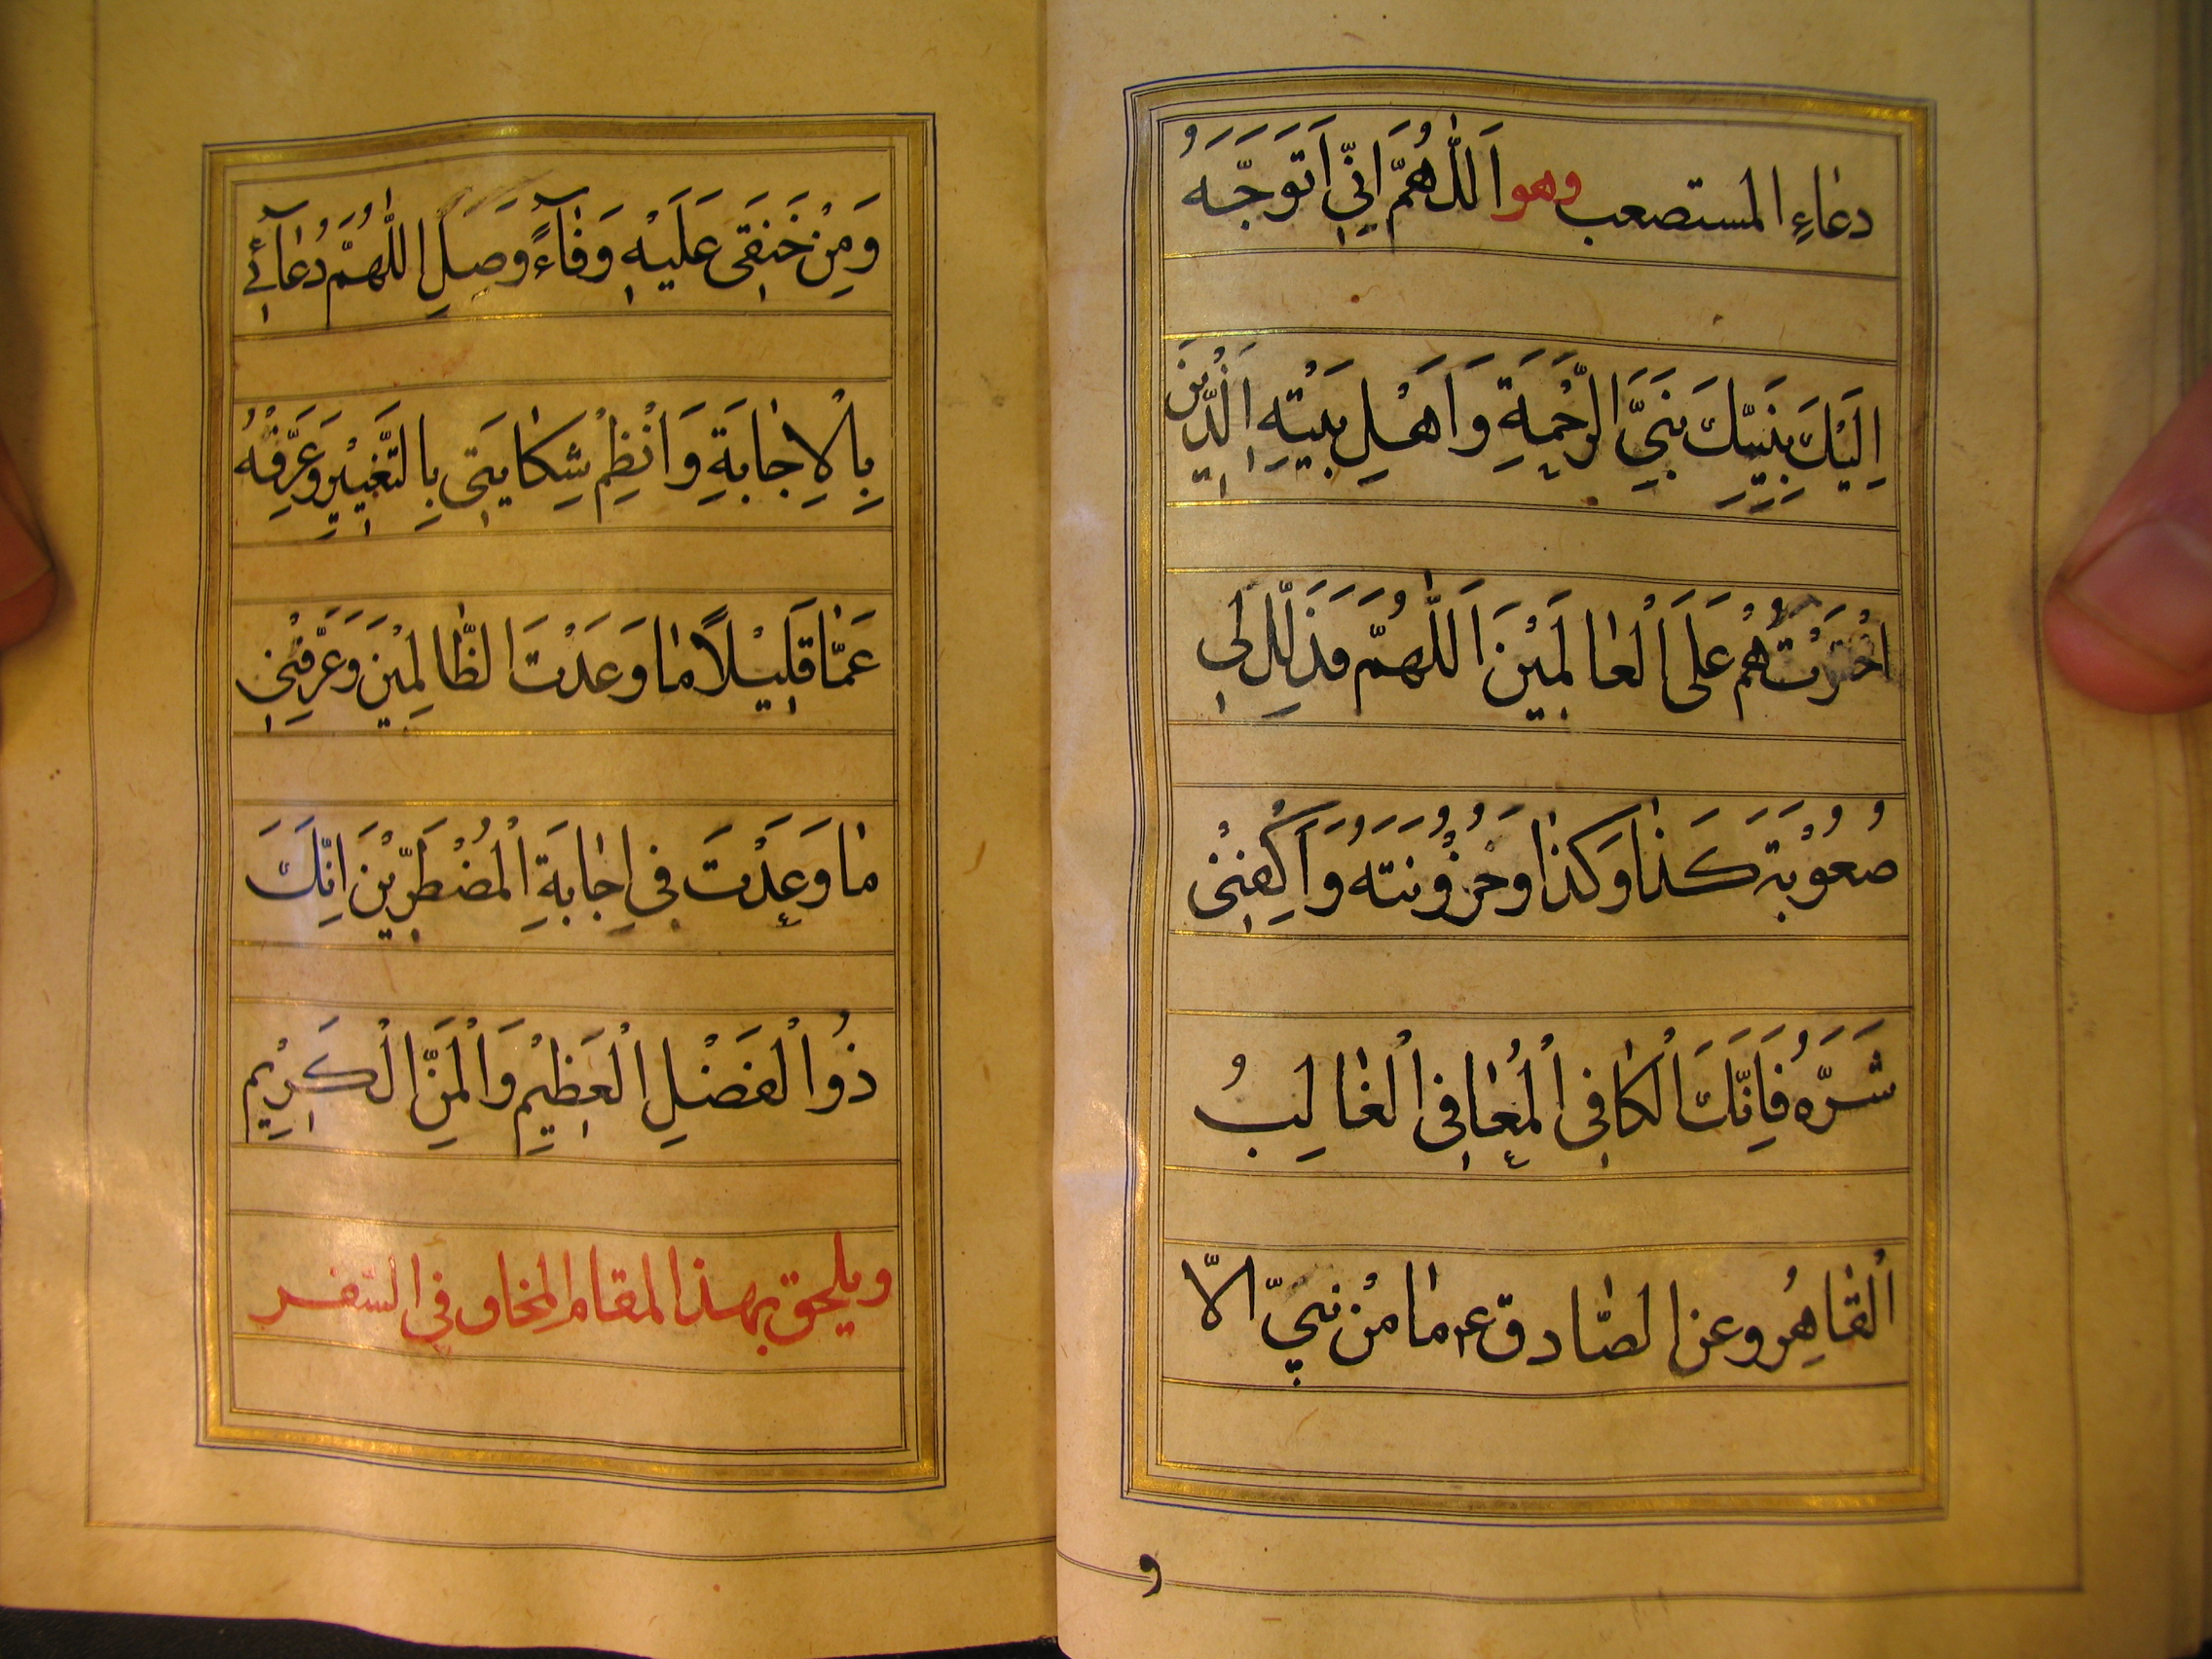 دعاءِ المستصعب وهو اَللّٰهُمَّ اِنّي اَتَوَجَّهُ
اِلَيْكَ بِنَبِيِّكَ نَبِيِّ الرَّحْمَةِ وَاَهْلِ بَيْتِهِ الَّذِيْنَ
اخْتَرْتَهُمْ عَلَى الْعٰالَمِيْنَ اَللّٰهُمَّ فَذَلِّلْ لي
صُعُوْبَةَ كَذٰا وَكَذٰا وَحُزُوْنَتَهُ وَاكْفِنيْ
شَرَّهُ فَاِنَّكَ الْكٰافِى الْمُعٰافِى الْغٰالِبُ
الْقٰاهِرُ وعن الصّادق ع م مٰا مِنْ نبيّ الّا
و
وَمِنْ خَنَقي عَلَيْهِ وَفٰآءً وَصِلِ اللّٰهُمَّ دُعٰآئي
بِالْاِجٰابَةِ وَانْظِمْ شِكٰايَتي بِالتَّغْيِيْرِ وَعَرِّفْهُ
عَمّٰا قَلِيْلاً مٰا وَعَدْتَ الظّٰالِمِيْنَ وَعَرِّفْنِي
مٰا وَعَدْتَ فِي اِجٰابَةِ الْمُضْطَرِّيْنَ اِنَّكَ
ذُو الْفَضْلِ الْعَظِيْمِ وَالْمَنِّ الْكَرِيْمِ
ويلحق بهذا المقام المخاوف في السّفر